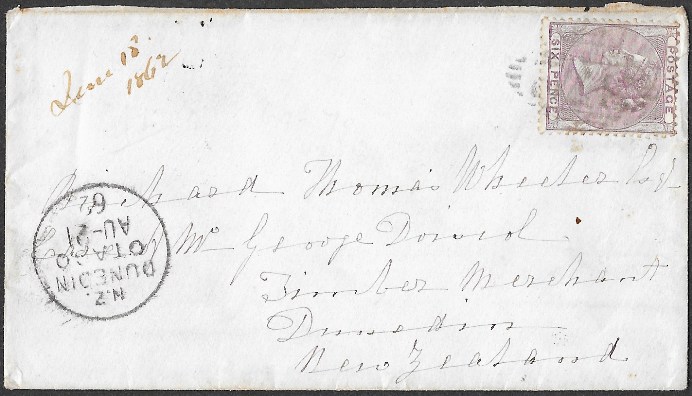 June 18
1862
SIX PENCE
POSTAGE
Richard Thomas Wheeler Esqr
Mr George Dowse
Timber Merchant
Dunedin
New Zealand
N.Z.
DUNEDIN
OTAGO
AU-21
62